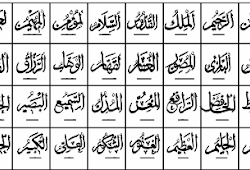 الرحيم الملك القدوس السلام المؤمن المهيمن
البارئ المصور الغفار القهار الوهاب الرزاق
الخافض الرافع المعز المذل السميع البصير
الحليم العظيم الغفور الشكور العلي الكبير